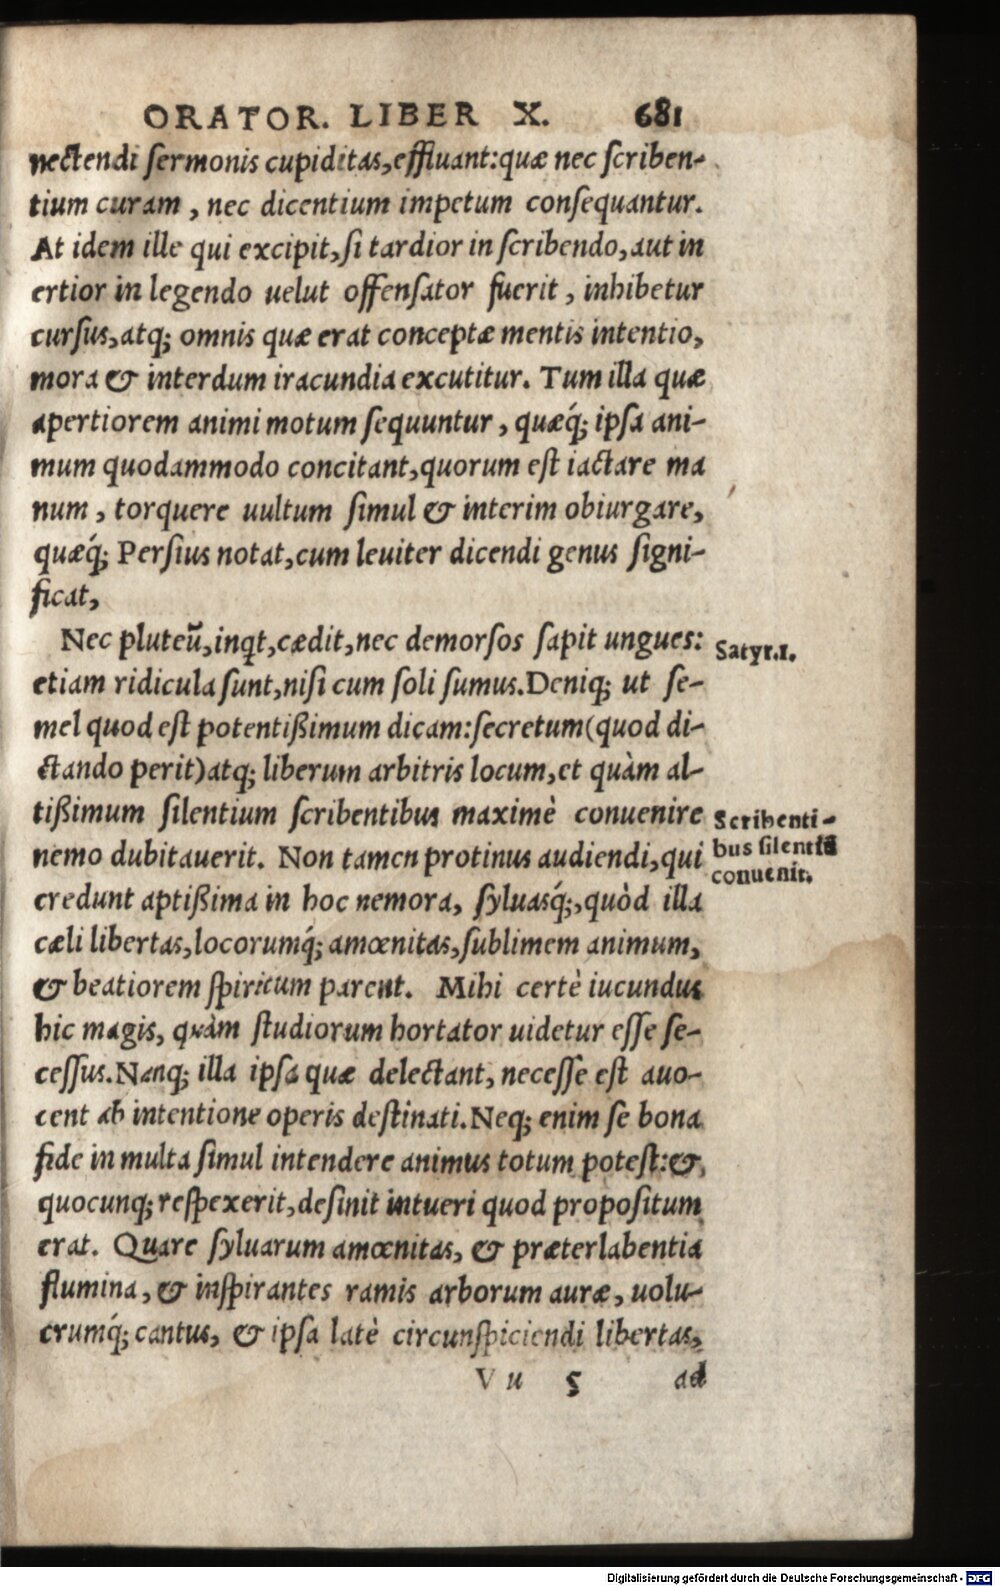 ORATOR. LIBER X. 681
nectendi ſermonis cupiditas, effluant: quæ nec ſcriben-
tium curam, nec dicentium impetum conſequantur.
At idem ille qui excipit, ſi tardior in ſcribendo, aut in
ertior in legendo uelut offenſator fuerit, inhibetur
curſus, atq; omnis quæ erat conceptæ mentis intentio,
mora & interdum iracundia excutitur. Tum illa quæ
apertiorem animi motum ſequuntur, quæq́; ipſa ani-
mum quodammodo concitant, quorum eſt iactare ma
num, torquere uultum ſimul & interim obiurgare,
quæq́; Perſius notat, cum leuiter dicendi genus ſigni-
ficat,
Nec pluteū, inqt, cædit, nec demorſos ſapit ungues: Satyr.1.
etiam ridicula ſunt, niſi cum ſoli ſumus. Deniq; ut ſe-
mel quod eſt potentißimum dicam: ſecretum (quod di-
ctando perit) atq; liberum arbitris locum, et quàm al-
tißimum ſilentium ſcribentibus maximè conuenire
nemo dubitauerit. Non tamen protinus audiendi, qui
Scribenti-
bus ſilentiū
conuenit.
credunt aptißima in hoc nemora, ſyluasq́;, quòd illa
cæli libertas, locorumq́; amœnitas, ſublimem animum,
& beatiorem ſpiritum parent. Mihi certè iucundus
hic magis, quàm ſtudiorum hortator uidetur eſſe ſe-
ceſſus. Nanq; illa ipſa quæ delectant, neceſſe eſt auo-
cent ab intentione operis deſtinati. Neq; enim ſe bona
fide in multa ſimul intendere animus totum poteſt: &,
quocunq; reſpexerit, deſinit intueri quod propoſitum
erat. Quare ſyluarum amœnitas, & præterlabentia
flumina, & inſpirantes ramis arborum auræ, uolu-
crumq́; cantus, & ipſa latè circunſpiciendi libertas,
V u 5 ad
Digitalisierung gefördert durch die Deutsche Forschungsgemeinschaft - DFG